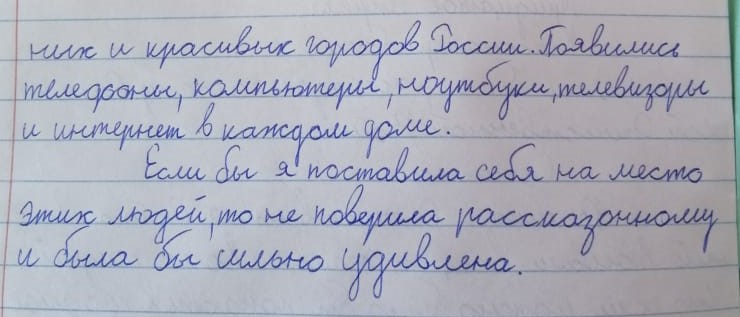 них и красивых городов России. Появились
телефоны, компьютеры, ноутбуки, телевизоры
и интернет в каждом доме.
Если бы я поставила себя на место
этих людей, то не поверила рассказонному
и была бы сильно удивлена.